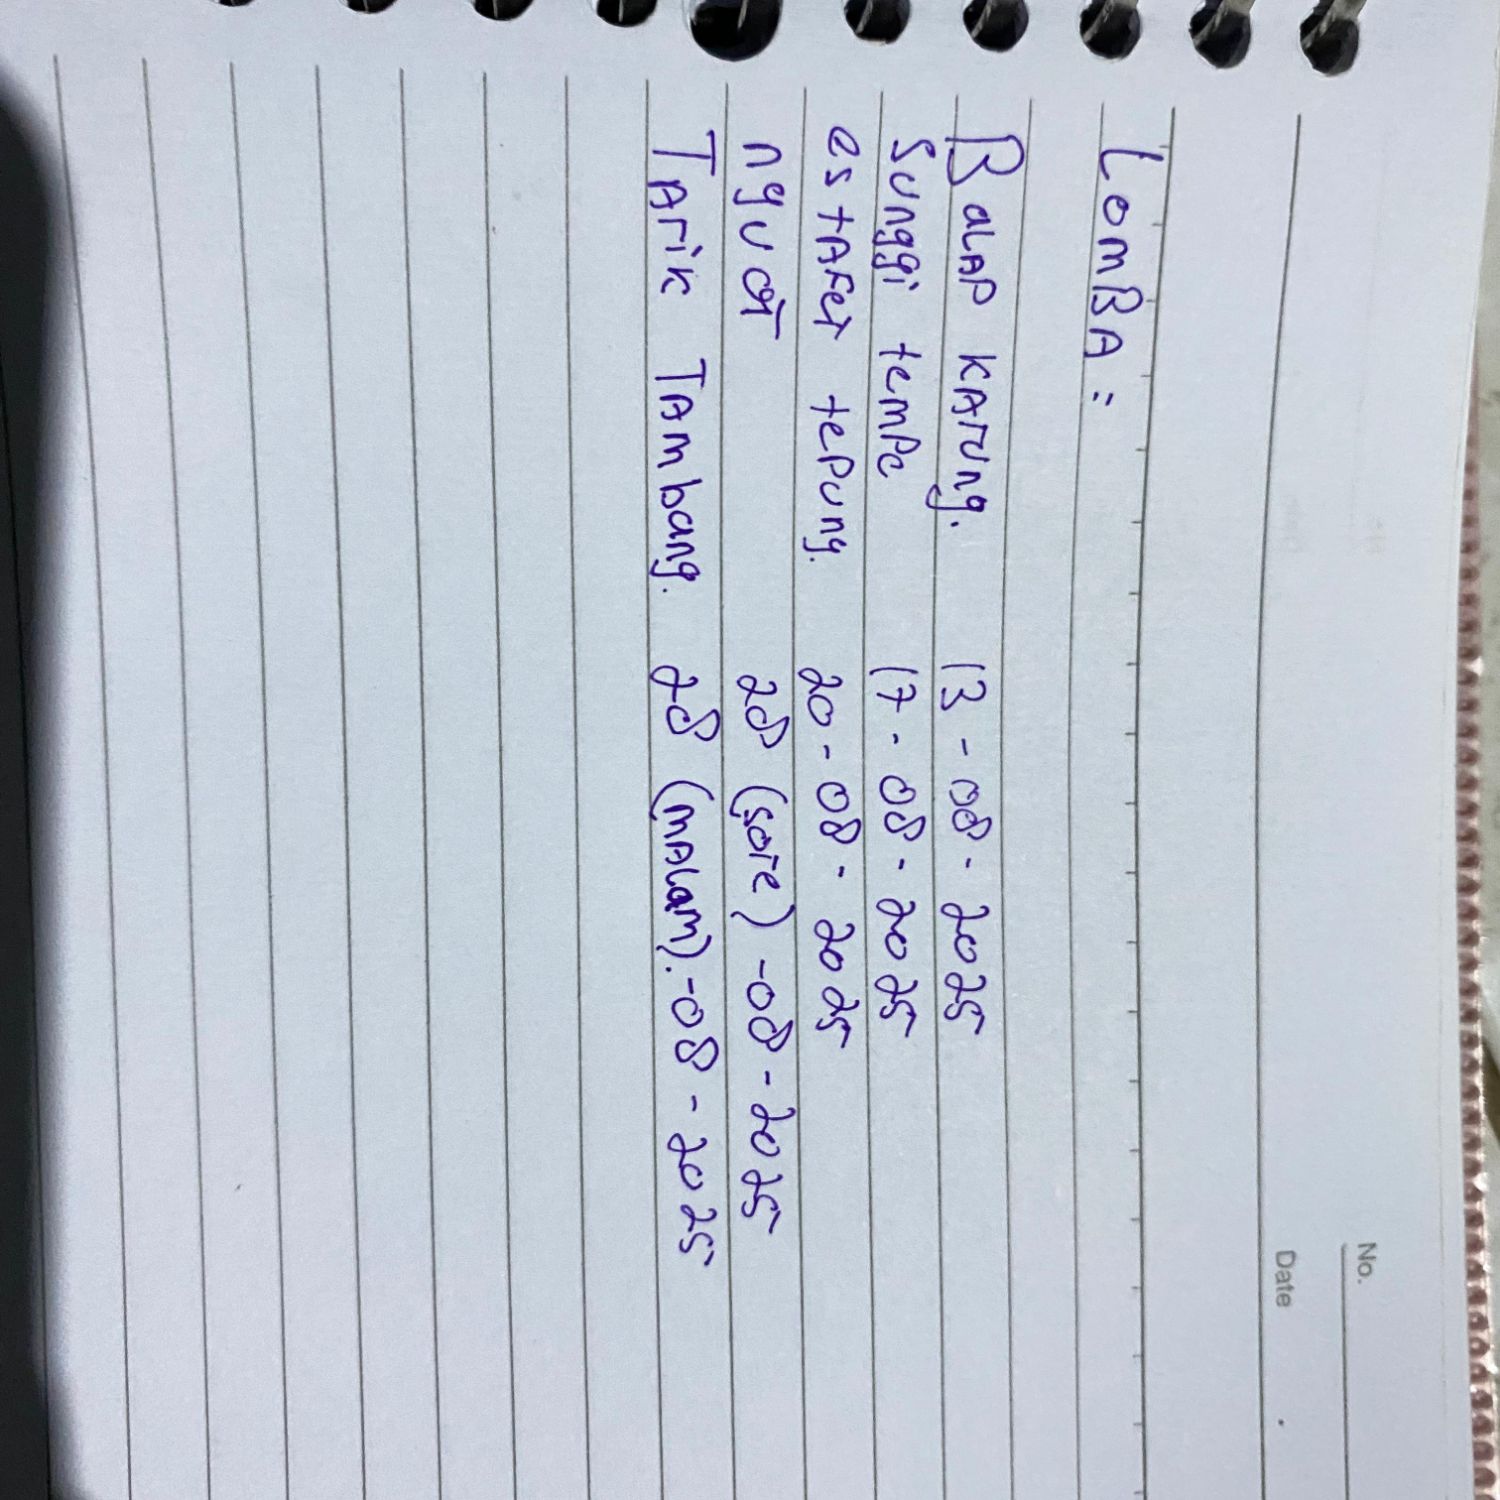 No.
Date
LomBA :
BaLAP KArung. 13 - 08 - 2025
Sunggi tempe 17 - 08 - 2025
esTAFet tepung. 20 - 08 - 2025
28 (sore) -08 - 2025
TArik TAmbang. 28 (mALam). -08 - 2025